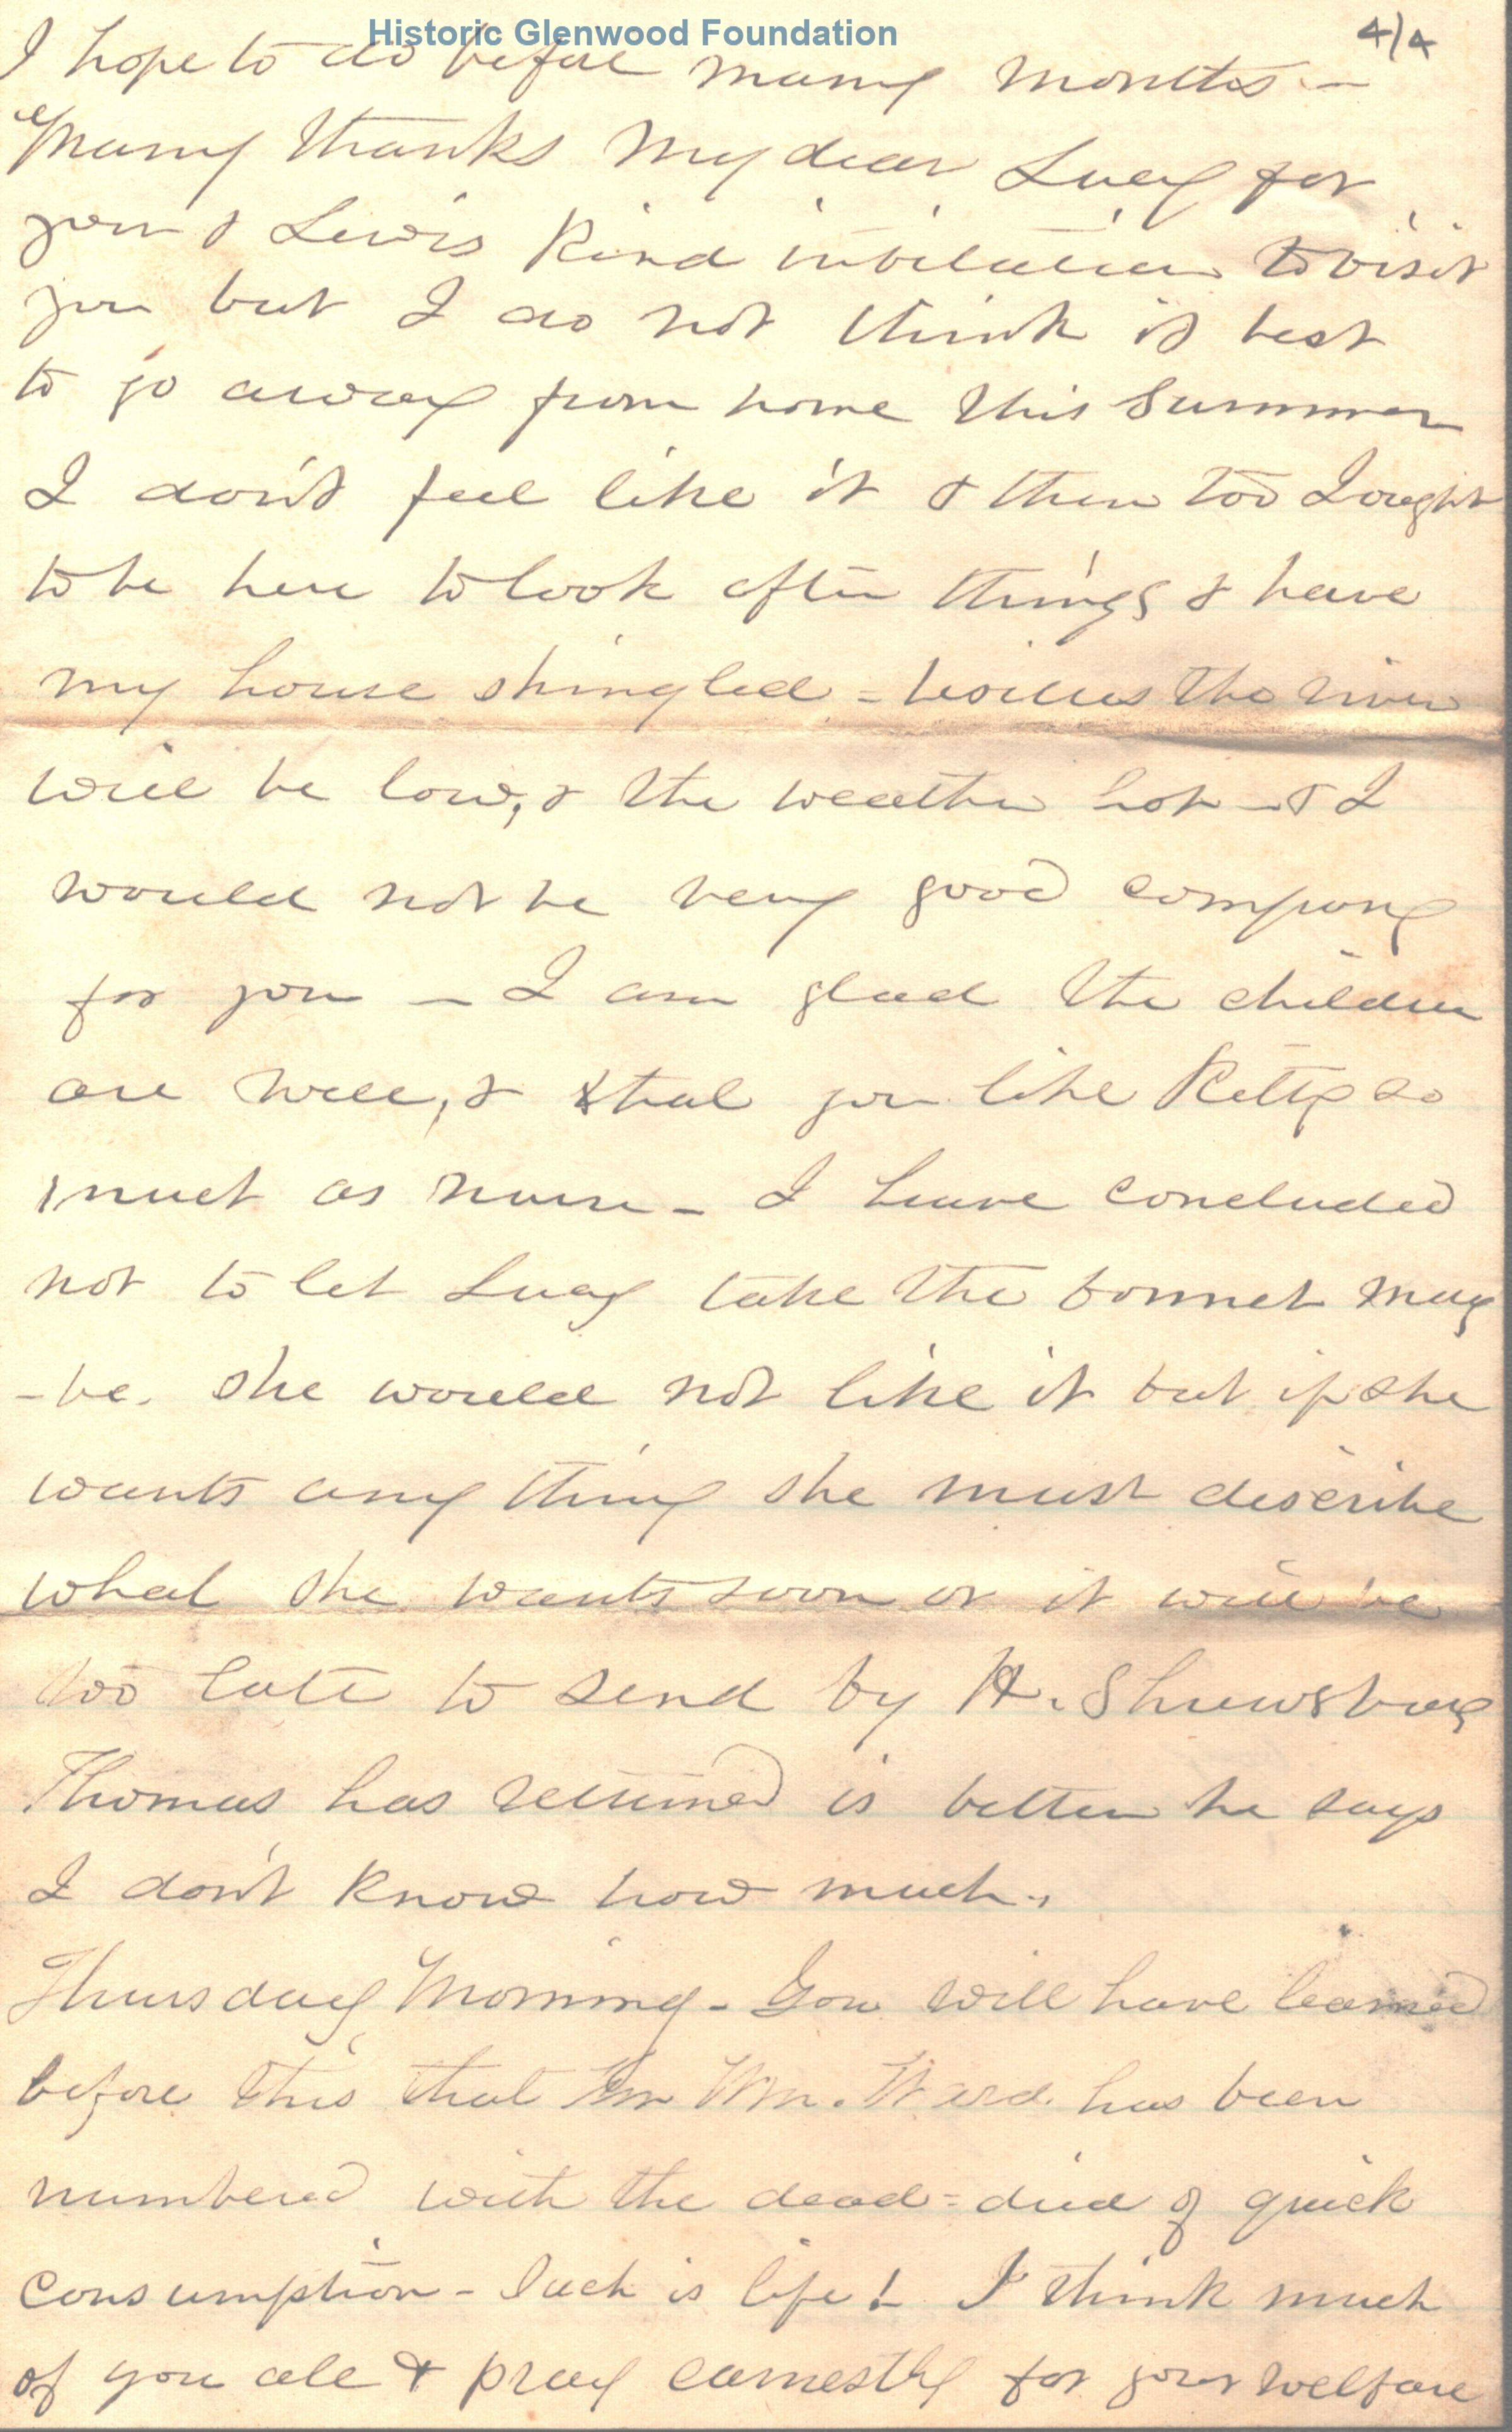 Historic Glenwood Foundation
4/4
I hope to do before many months —
Many thanks My dear Lucy for
your & Lewis Kind invitation to visit
you but I do not think it best
to go away from home this Summer
I don't feel like it & then too I ought
to be here to look after things & have
my house shingled = besides the river
will be low, & the weather hot — & I
would not be very good company
for you — I am glad the children
are well, & that you like Kitty so
much as nurse — I have concluded
not to let Lucy take the bonnet may
-be. she would not like it but if she
wants any thing she must describe
what she wants soon or it will be
too late to send by H. Shrewsbury
Thomas has returned is better he says
I don't know how much.
Thursday Morning - You will have learned
before this that Wm. Ward has been
numbered with the dead = died of quick
Consumption - Such is life! I think much
of you all & pray earnestly for your welfare